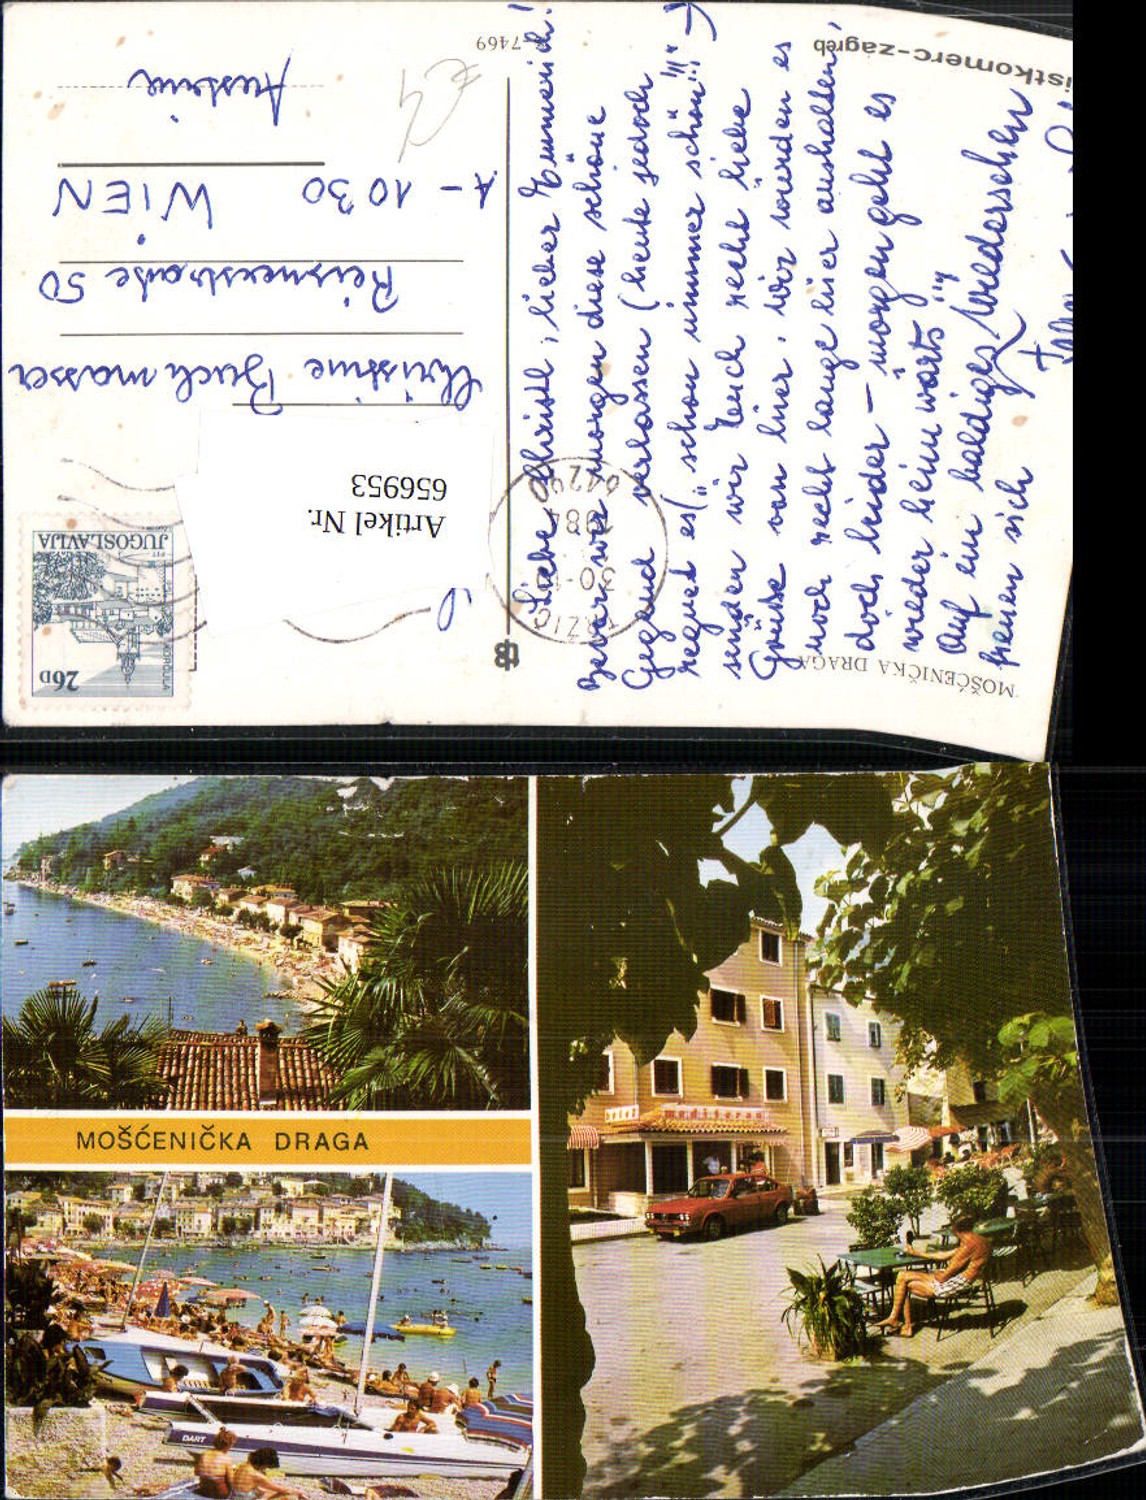 Liebe Christl, lieber Emmerich!
Bevor wir morgen diese schöne
Gegend verlassen (heute jedoch
regnet es („schon immer schön!!!"
senden wir Euch recht liebe
Grüße von hier. Wir würden es
noch recht lange hier aushalten,
doch leider – morgen geht es
wieder heimwärts!!!
Auf ein baldiges Wiedersehen
freuen sich
Christine Buchmasser
50
A-1030 WIEN
Austria
7469
€4
istkomerc-zagreb
MOŠĆENIČKA DRAGA
Artikel Nr.
656953
JUGOSLAVIJA
KORDULA
26D
1984
64290
MOŠĆENIČKA DRAGA
mediteran
DART